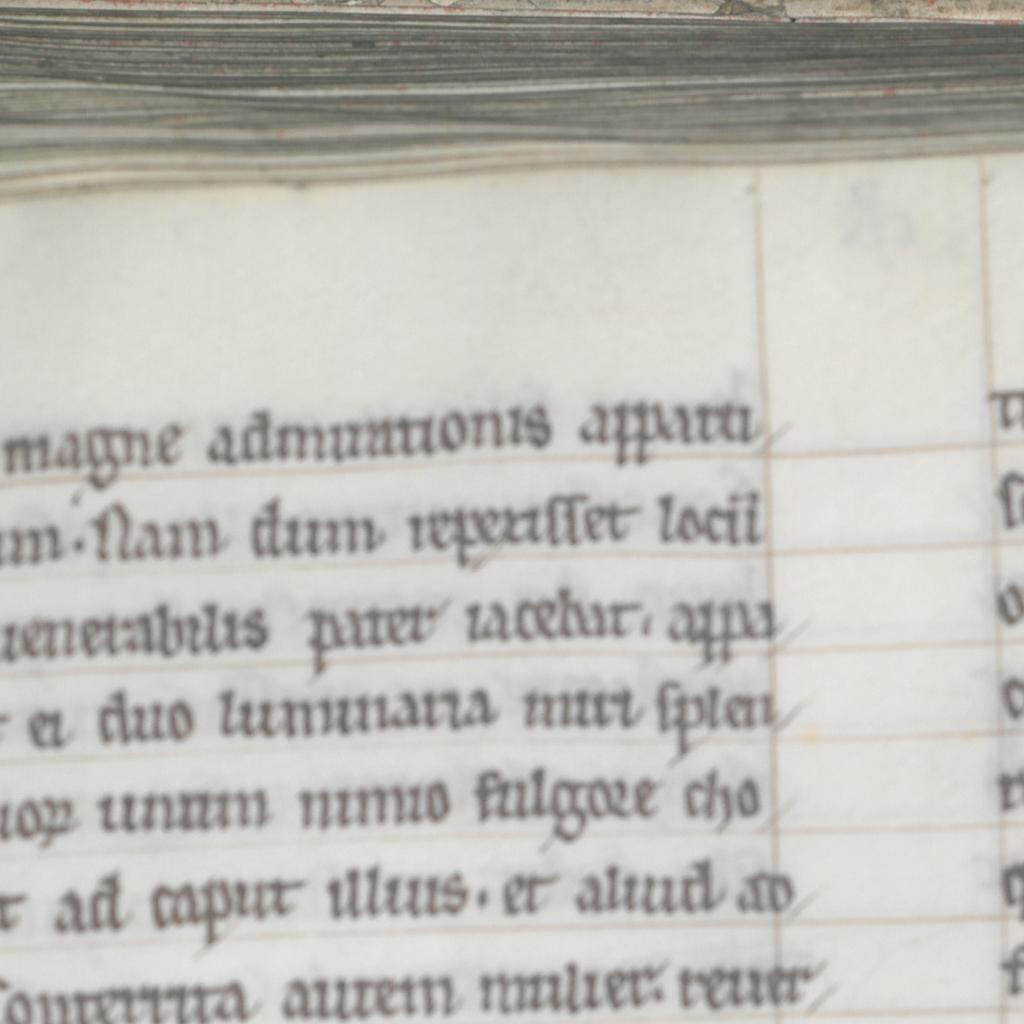 magne admirationis apparu
um. Nam dum reperisset locū
uenerabilis pater iacebat, appa
ei duo luminaria miri splen
unum nimio fulgore cho
ad caput illius. et aliud ad
Conterrita autem mulier. reuer